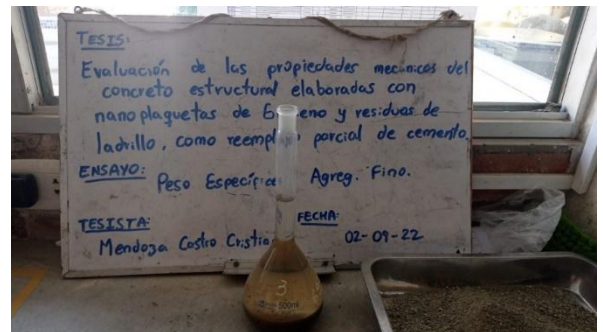 TESIS:
Evaluación de las propiedades mecánicas del
concreto estructural elaboradas con
nano plaquetas de
y residuos de
ladrillo, como parcial de cemento.
ENSAYO:
Peso Agreg. Fino.
TESISTA:
Mendoza Castro
FECHA:
02-09-22
3
500ml